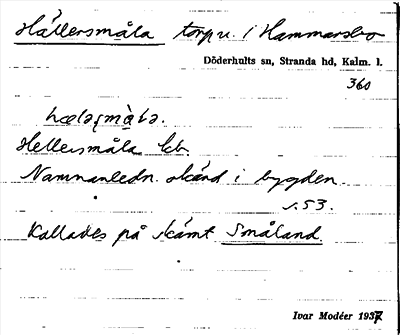 Hällersmåla torp u. i Hammarsbo
Döderhults sn, Stranda hd, Kalm. l.
360
Hellersmåla kb.
Namnanledn. okänd i bygden.
s. 53.
Kallades på skämt Småland
Ivar Modéer 1937